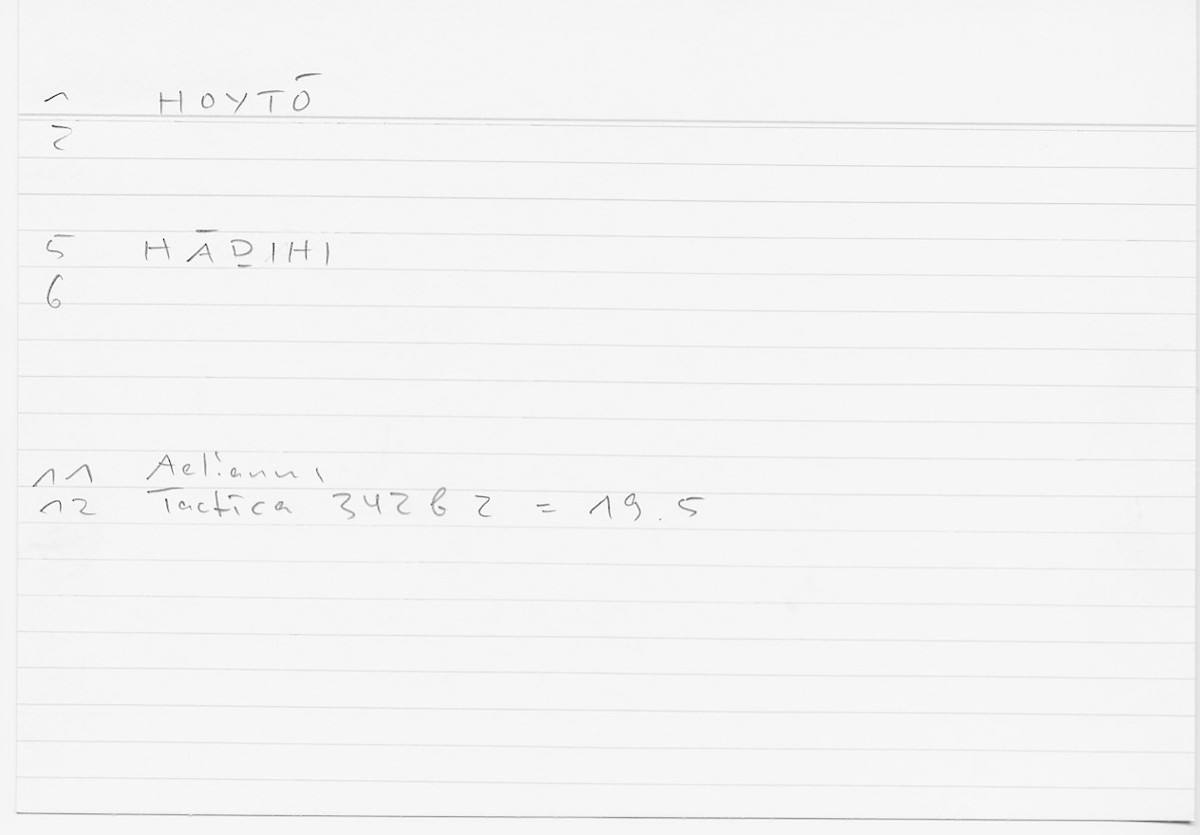 1 HOYTŌ
2
5 HĀḎIHI
6
11 Aelianus
12 Tactica 342b2 = 19.5